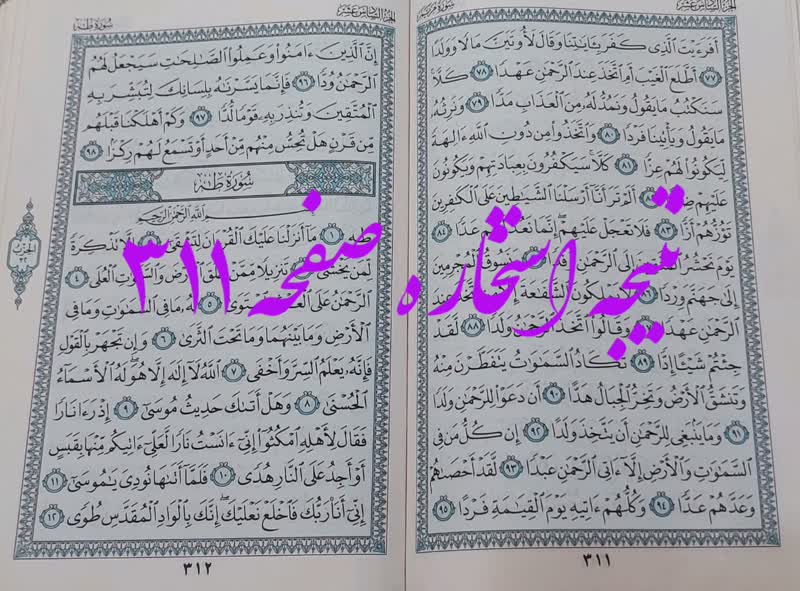 الجزء السادس عشر
سورة مريم
أَفَرَءَيْتَ ٱلَّذِى كَفَرَ بِـَٔايَٰتِنَا وَقَالَ لَأُوتَيَنَّ مَالًا وَوَلَدًا
٧٧ أَطَّلَعَ ٱلْغَيْبَ أَمِ ٱتَّخَذَ عِندَ ٱلرَّحْمَٰنِ عَهْدًا ٧٨ كَلَّا
سَنَكْتُبُ مَا يَقُولُ وَنَمُدُّ لَهُۥ مِنَ ٱلْعَذَابِ مَدًّا ٧٩ وَنَرِثُهُۥ
مَا يَقُولُ وَيَأْتِينَا فَرْدًا ٨٠ وَٱتَّخَذُوا۟ مِن دُونِ ٱللَّهِ ءَالِهَةً
لِّيَكُونُوا۟ لَهُمْ عِزًّا ٨١ كَلَّا سَيَكْفُرُونَ بِعِبَادَتِهِمْ وَيَكُونُونَ
عَلَيْهِمْ أَلَمْ تَرَ أَنَّآ أَرْسَلْنَا ٱلشَّيَٰطِينَ عَلَى ٱلْكَٰفِرِينَ
تَؤُزُّهُمْ أَزًّا ٨٣ فَلَا تَعْجَلْ عَلَيْهِمْ إِنَّمَا نَعُدُّ لَهُمْ عَدًّا ٨٤
يَوْمَ نَحْشُرُ إِلَى ٱلرَّحْمَٰنِ وَنَسُوقُ ٱلْمُجْرِمِينَ
إِلَىٰ جَهَنَّمَ وِرْدًا ٨٦ لَّا يَمْلِكُونَ ٱلشَّفَٰعَةَ عِندَ
ٱلرَّحْمَٰنِ عَهْدًا ٨٧ وَقَالُوا۟ ٱتَّخَذَ ٱلرَّحْمَٰنُ وَلَدًا ٨٨ لَّقَدْ
جِئْتُمْ شَيْـًٔا إِدًّا ٨٩ تَكَادُ ٱلسَّمَٰوَٰتُ يَتَفَطَّرْنَ مِنْهُ
وَتَنشَقُّ ٱلْأَرْضُ وَتَخِرُّ ٱلْجِبَالُ هَدًّا ٩٠ أَن دَعَوْا۟ لِلرَّحْمَٰنِ وَلَدًا
٩١ وَمَا يَنۢبَغِى لِلرَّحْمَٰنِ أَن يَتَّخِذَ وَلَدًا ٩٢ إِن كُلُّ مَن فِى
ٱلسَّمَٰوَٰتِ وَٱلْأَرْضِ إِلَّآ ءَاتِى ٱلرَّحْمَٰنِ عَبْدًا ٩٣ لَّقَدْ أَحْصَىٰهُمْ
وَعَدَّهُمْ عَدًّا ٩٤ وَكُلُّهُمْ ءَاتِيهِ يَوْمَ ٱلْقِيَٰمَةِ فَرْدًا ٩٥
٣١١
الجزء السادس عشر
سورة طه
إِنَّ ٱلَّذِينَ ءَامَنُوا۟ وَعَمِلُوا۟ ٱلصَّٰلِحَٰتِ سَيَجْعَلُ لَهُمُ
ٱلرَّحْمَٰنُ وُدًّا ٩٦ فَإِنَّمَا يَسَّرْنَٰهُ بِلِسَانِكَ لِتُبَشِّرَ بِهِ
ٱلْمُتَّقِينَ وَتُنذِرَ بِهِۦ قَوْمًا لُّدًّا ٩٧ وَكَمْ أَهْلَكْنَا قَبْلَهُم
مِّن قَرْنٍ هَلْ تُحِسُّ مِنْهُم مِّنْ أَحَدٍ أَوْ تَسْمَعُ لَهُمْ رِكْزًا ٩٨
سُورَةُ طه
بِسْمِ ٱللَّهِ ٱلرَّحْمَٰنِ ٱلرَّحِيمِ
طه ١ مَآ أَنزَلْنَا عَلَيْكَ ٱلْقُرْءَانَ لِتَشْقَىٰٓ إِلَّا تَذْكِرَةً
لِّمَن يَخْشَىٰ تَنزِيلًا مِّمَّنْ خَلَقَ ٱلْأَرْضَ وَٱلسَّمَٰوَٰتِ ٱلْعُلَى ٤
ٱلرَّحْمَٰنُ عَلَى ٱلْعَرْشِ ٱسْتَوَىٰ ٥ لَهُۥ مَا فِى ٱلسَّمَٰوَٰتِ وَمَا فِى
ٱلْأَرْضِ وَمَا بَيْنَهُمَا وَمَا تَحْتَ ٱلثَّرَىٰ ٦ وَإِن تَجْهَرْ بِٱلْقَوْلِ
فَإِنَّهُۥ يَعْلَمُ ٱلسِّرَّ وَأَخْفَى ٧ ٱللَّهُ لَآ إِلَٰهَ إِلَّا هُوَ لَهُ ٱلْأَسْمَآءُ
ٱلْحُسْنَىٰ ٨ وَهَلْ أَتَىٰكَ حَدِيثُ مُوسَىٰٓ ٩ إِذْ رَءَا نَارًا
فَقَالَ لِأَهْلِهِ ٱمْكُثُوٓا۟ إِنِّىٓ ءَانَسْتُ نَارًا لَّعَلِّىٓ ءَاتِيكُم مِّنْهَا بِقَبَسٍ
أَوْ أَجِدُ عَلَى ٱلنَّارِ هُدًى ١٠ فَلَمَّآ أَتَىٰهَا نُودِىَ يَٰمُوسَىٰٓ ١١
إِنِّىٓ أَنَا۠ رَبُّكَ فَٱخْلَعْ نَعْلَيْكَ إِنَّكَ بِٱلْوَادِ ٱلْمُقَدَّسِ طُوًى ١٢
٣١٢
نتیجه استخاره صفحه ۳۱۱